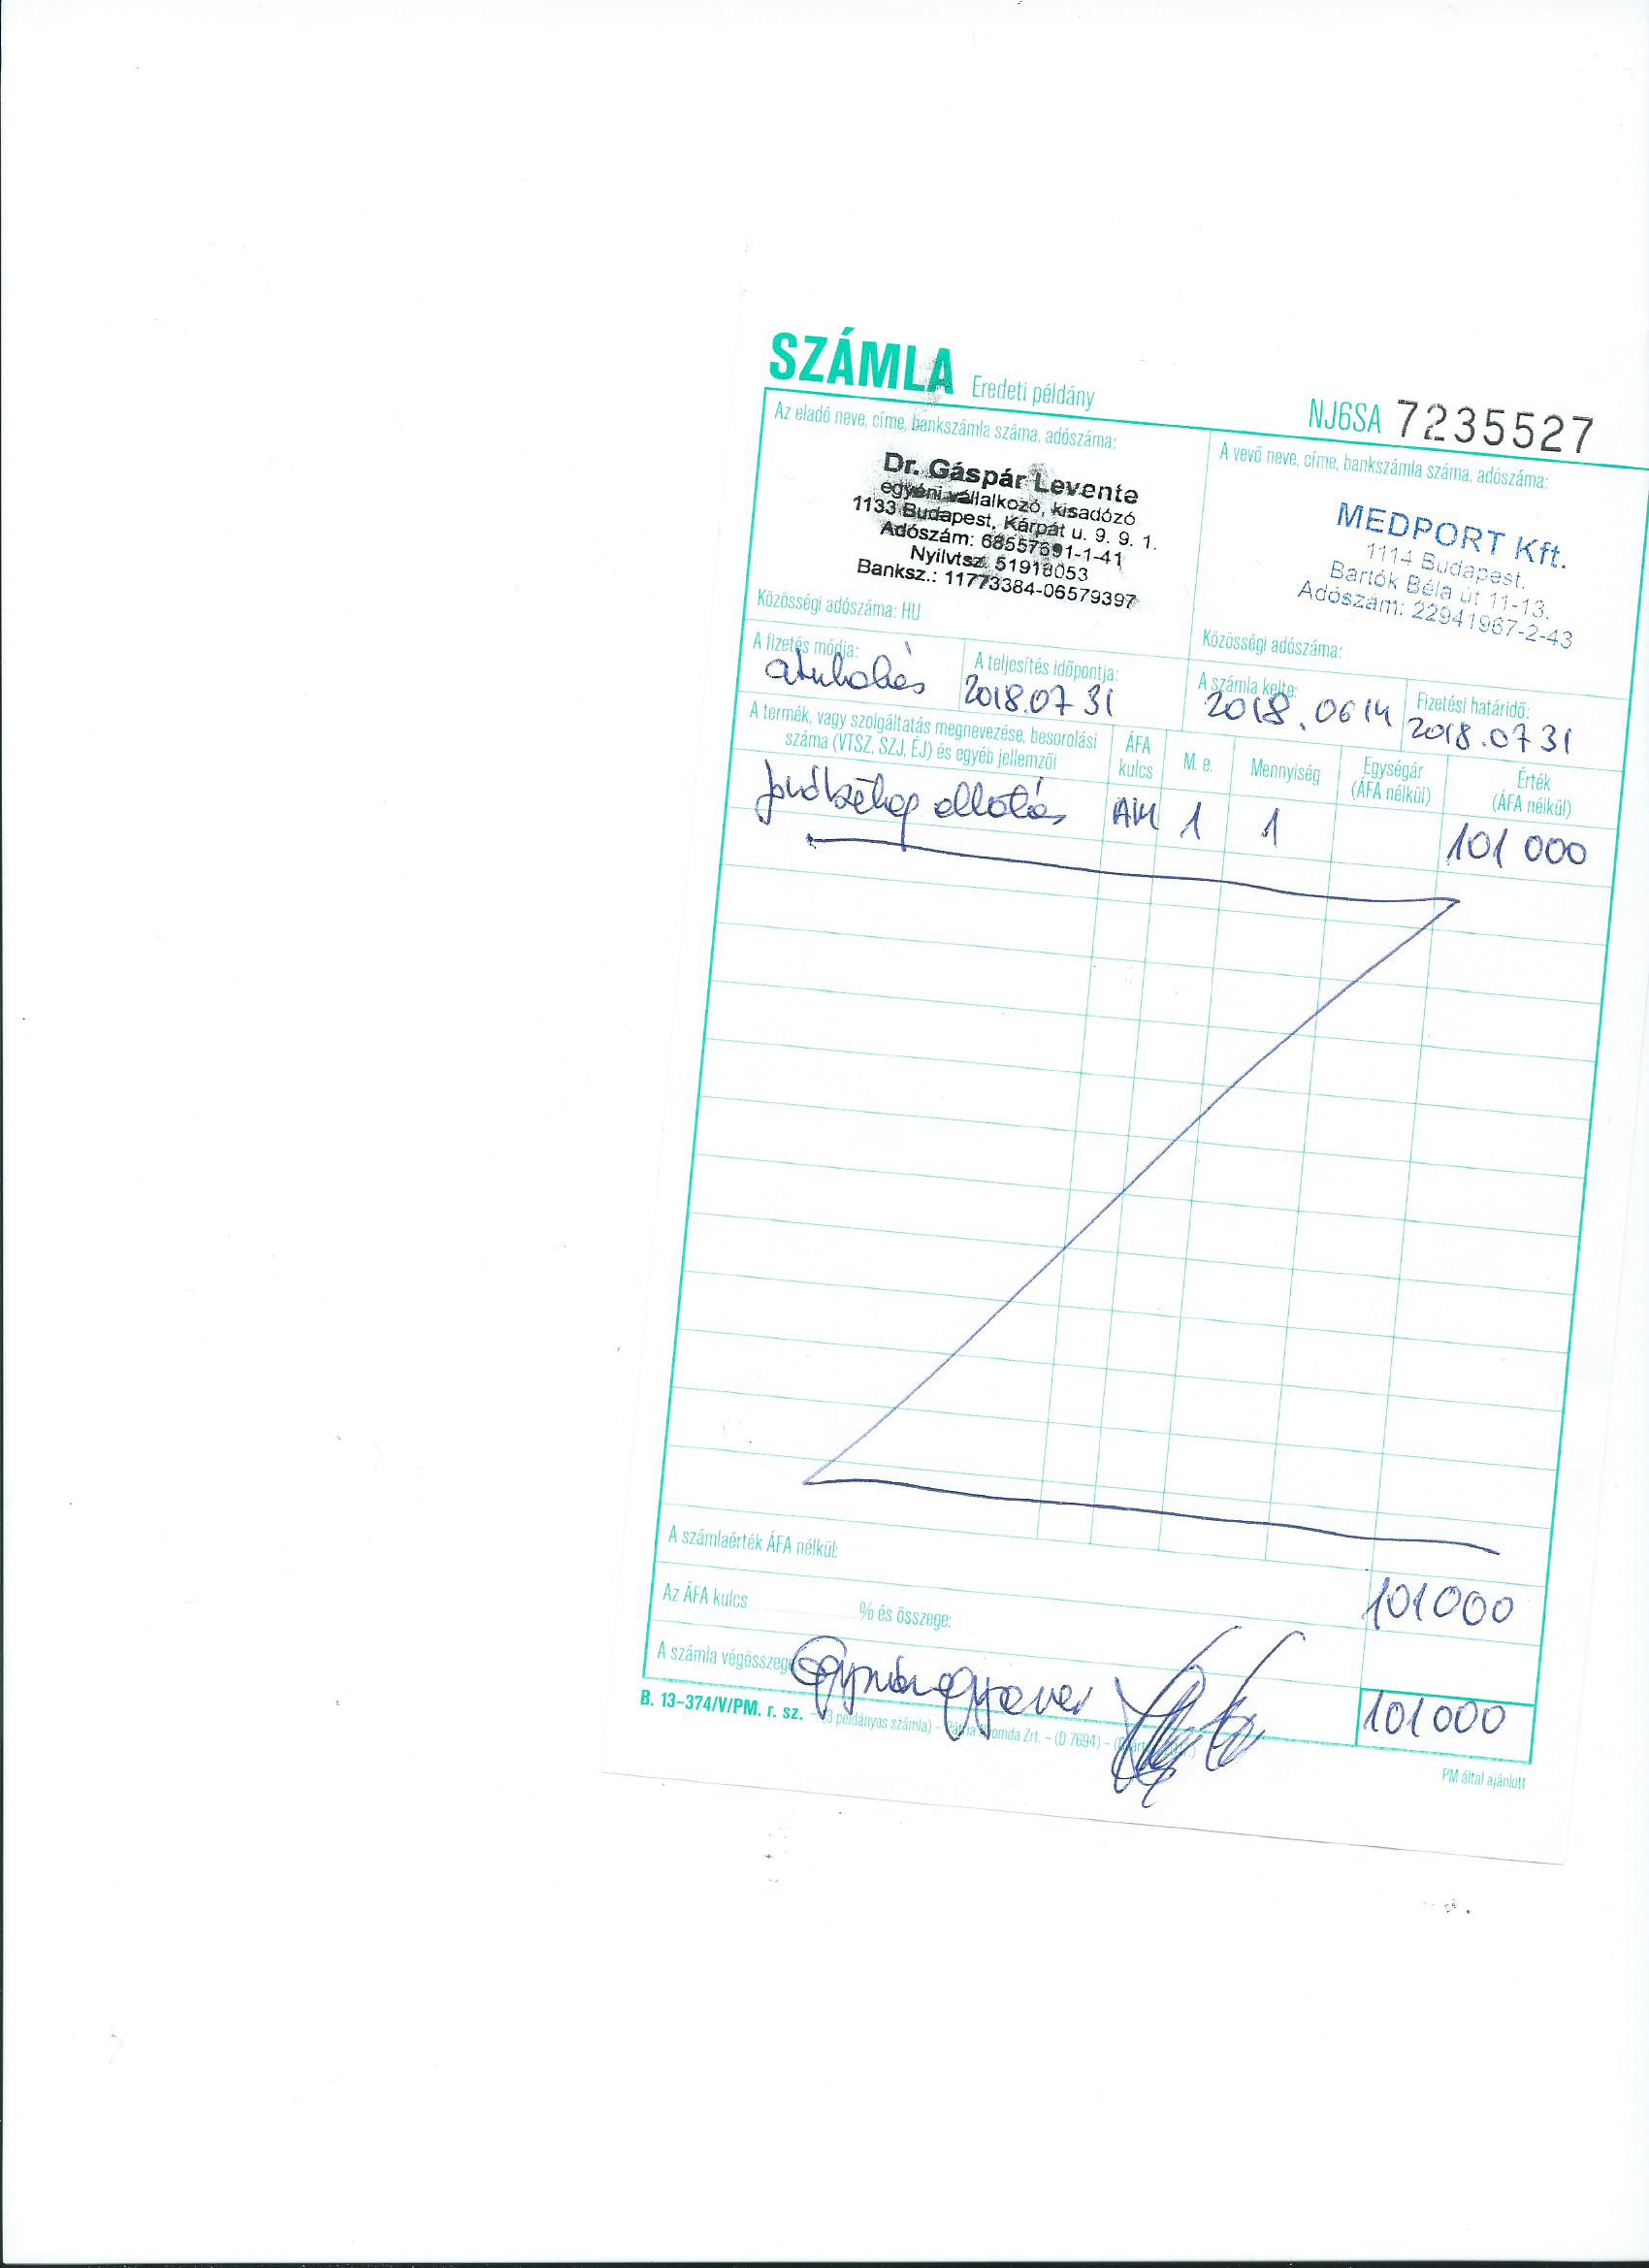 SZÁMLA Eredeti példány
NJ6SA 7235527
Az eladó neve, címe, bankszámla száma, adószáma:
Dr. Gáspár Levente
egyéni vállalkozó, kisadózó
1133 Budapest, Kárpát u. 9. 9. 1.
Adószám: 68557691-1-41
Nyilvtsz. 51918053
Banksz.: 11773384-06579397
Közösségi adószáma: HU
A vevő neve, címe, bankszámla száma, adószáma:
MEDPORT Kft.
1114 Budapest.
Bartók Béla út 11-13.
Adószám: 22941967-2-43
Közösségi adószáma:
A fizetés módja:
átutalás
A teljesítés időpontja:
2018.07 31
A számla kelte:
2018.06 14
Fizetési határidő:
2018.07 31
A termék, vagy szolgáltatás megnevezése, besorolási
száma (VTSZ, SZJ, ÉJ) és egyéb jellemzői
ÁFA
kulcs
M. e.
Mennyiség
Egységár
(ÁFA nélkül)
Érték
(ÁFA nélkül)
járóbeteg ellátás AM 1 1 101 000
A számlaérték ÁFA nélkül: 101000
Az ÁFA kulcs % és összege:
A számla végösszege 101000
B. 13-374/V/PM. r. sz. - (3 példányos számla) - Pátria Nyomda Zrt. - (D 7694) -
PM által ajánlott